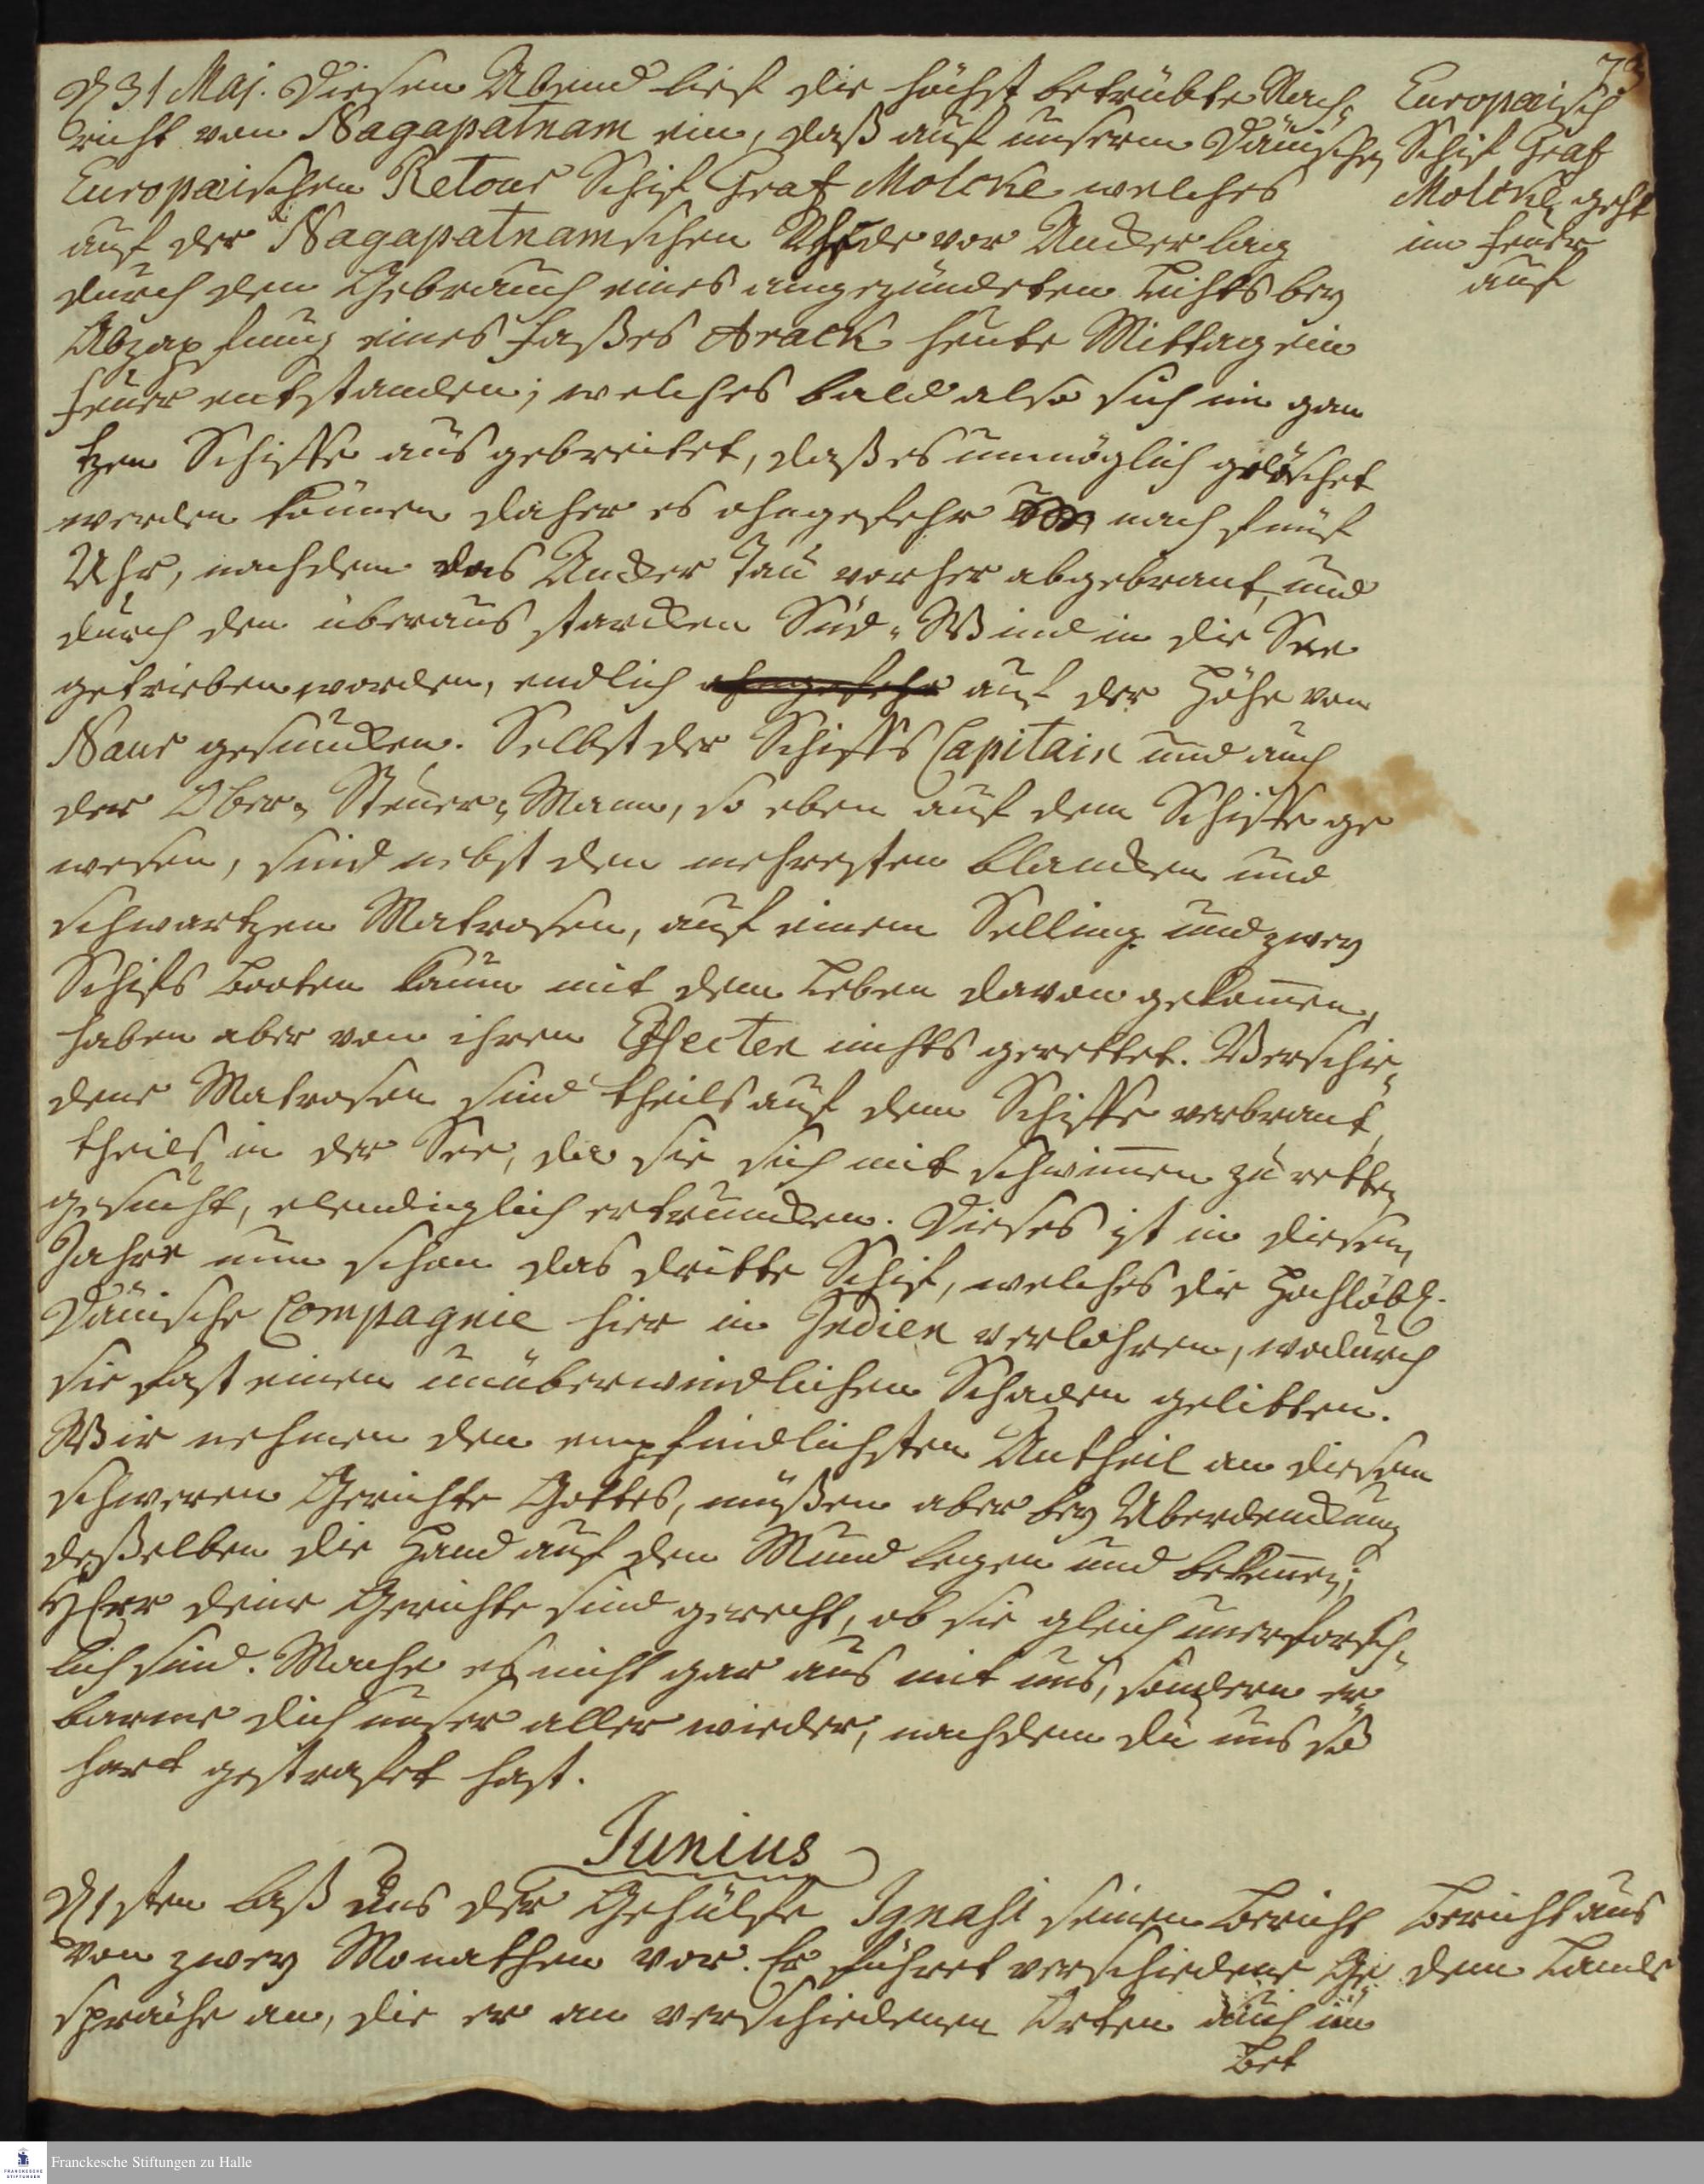 D 31 Maj. Diesen Abend lief die höchst betrübte Nach-
richt von Nagapatnam ein, daß auf unserm Dänischen
Europæischen Retour Schif Graf Molcke welches
auf der Nagapatnamschen Rhede vor Ancker lag
durch den Gebrauch eines angezündeten Lichts bey
Abzapfung eines Faßes Arack heute Mittag ein
Feuer entstanden; welches bald also sich im gan
tzen Schiffe ausgebreitet, daß es unmöglich gelöschet
werden können daher es ohngefehr nach fünf
Uhr, nachdem das Ancker Tau vorher abgebrant, und
durch den überaus starcken Süd-Wind in die See
getrieben worden, endlich ohngefehr auf der Höhe von
Naur gesuncken. Selbst der Schiffs Capitain und auch
der Ober-Steuer-Mann, so eben auf dem Schiffe ge
wesen, sind nebst den mehresten blancken und
schwartzen Matrosen, auf einem Selling und zwey
Schifs Booten kaum mit dem Leben davon gekom̄en,
haben aber von ihren Effecten nichts gerettet. Verschie-
dene Matrosen sind theils auf dem Schiffe verbrant,
theils in der See, da sie sich mit schwim̄en zu retten
gesucht, elendiglich ertruncken. Dieses ist in diesem
Jahre nun schon das dritte Schif, welches die Hochlöbl.
Dänische Compagnie hier in Indien verlohren, wodurch
sie fast einen unüberwindlichen Schaden gelitten.
Wir nehmen den empfindlichsten Antheil an diesem
schweren Gerichte Gottes, müßen aber bey Überdenckung
deßelben die Hand auf den Mund legen und beken̄en;
HErr deine Gerichte sind gerecht, ob sie gleich unerforsch-
lich sind. Mache es nicht gar aus mit uns, sondern er
barme dich unser aller wieder, nachdem du uns so
hart gestrafet hast.
Junius
D 1sten laß uns der Gehülfe Ignasi seinen Bericht
von zwey Monathen vor. Er führet verschiedene Ge
spräche an, die er an verschiedenen Orten auch im
Bet
73
Europæisch
Schif Graf
Molcke geht
im Feuer
auf
Bericht aus
dem Lande
Franckesche Stiftungen zu Halle
FRANCKESCHE
STIFTUNGEN